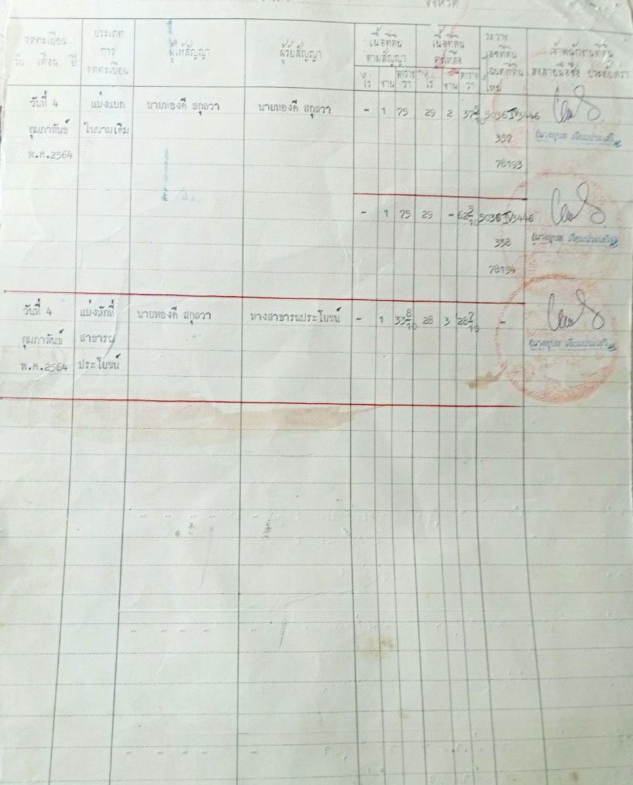 จังหวัด
จดทะเบียน
วัน เดือน ปี
ประเภท
การ
จดทะเบียน
ผู้ให้สัญญา
ผู้รับสัญญา
เนื้อที่ดิน
ตามสัญญา
ไร่ งาน ตารางวา
เนื้อที่ดิน
คงเหลือ
ไร่ งาน ตารางวา
ระวาง
เลขที่ดิน
โฉนดที่ดิน
ใหม่
เจ้าพนักงานที่ดิน
ลงลายมือชื่อ ประทับตรา
วันที่ 4 แบ่งแยก นายทองคี สกุลวา นายทองคี สกุลวา - 1 75 29 2 5036 IV 3446
กุมภาพันธ์ ในนามเดิม 357
พ.ศ.2564 78193
- 1 75 29 - 62 9/10 5036 IV 3446
358
78194
วันที่ 4 แบ่งหักที่ นายทองคี สกุลวา ทางสาธารณประโยชน์ - 1 33 8/10 28 3 28 7/10 -
กุมภาพันธ์ สาธารณ
พ.ศ.2564 ประโยชน์